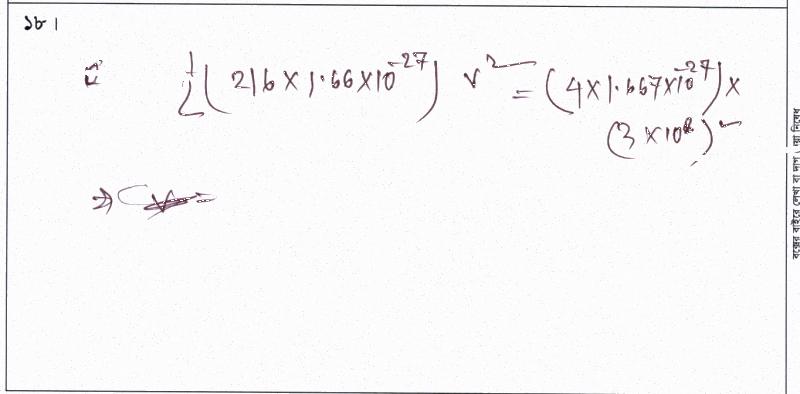 ১৮।
½(216×1.66×10⁻²⁷) v² = (4×1.667×10⁻²⁷)×
(3×10⁸)²
⇒
বক্সের বাইরে লেখা বা দাগ দেয়া নিষেধ